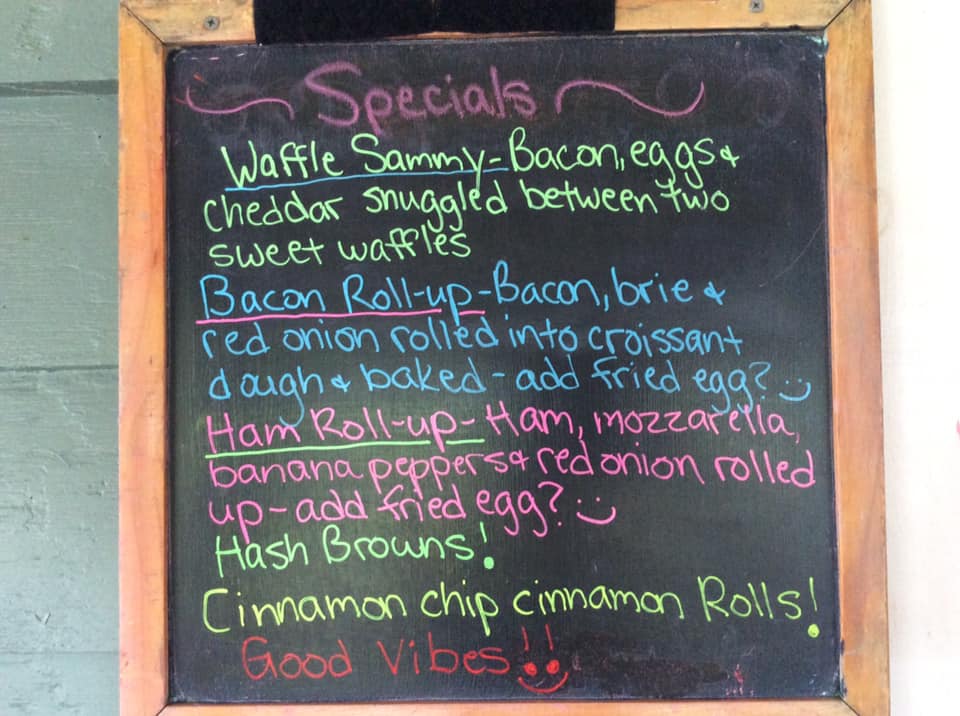 Specials
Waffle Sammy-Bacon, eggs &
cheddar snuggled between two
sweet waffles
Bacon Roll-up-Bacon, brie &
red onion rolled into croissant
dough & baked - add fried egg?
Ham Roll-up- Ham, mozzarella,
banana peppers & red onion rolled
up - add fried egg?
Hash Browns!
Cinnamon chip cinnamon Rolls!
Good Vibes!!